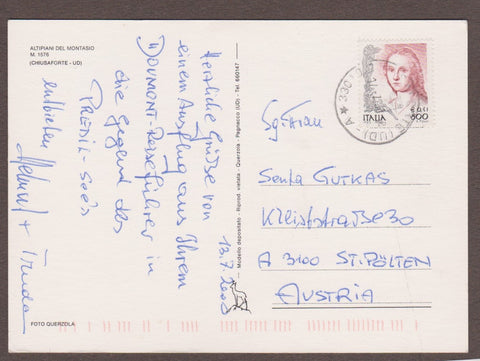 ALTIPIANI DEL MONTASIO
M. 1576
(CHIUSAFORTE - UD)
13.7.2000
Herzliche Grüsse von
einem Ausflug aus Ihrem
DOUMONT-Reiseführer in
die Gegend des
PREDIL-Sees
entbieten Helmut + Trude
FOTO QUERZOLA
Modello depositato - Riprod. vietata - Querzola - Pagnacco (UD) - Tel. 660147
ITALIA
€ 0,41
800
330
(UD) - A
Sg. Frau
Senta GUTKAS
Kleiststraße 30
A 3100 ST. PÖLTEN
AUSTRIA